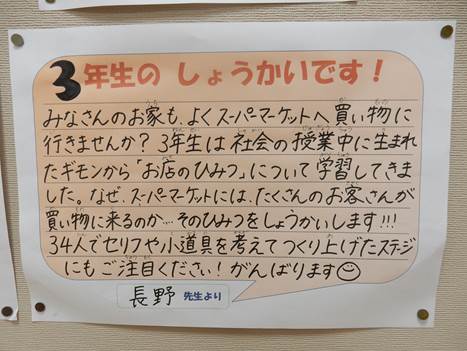 3年生の しょうかいです！
みなさんのお家も、よくスーパーマーケットへ買い物に
行きませんか？3年生は社会の授業中に生まれ
たギモンから「お店のひみつ」について学習してきま
した。なぜ、スーパーマーケットには、たくさんのお客さんが
買い物に来るのか…そのひみつをしょうかいします！！！
34人でセリフや小道具を考えてつくり上げたステージ
にもご注目ください！がんばります☺
長野 先生より